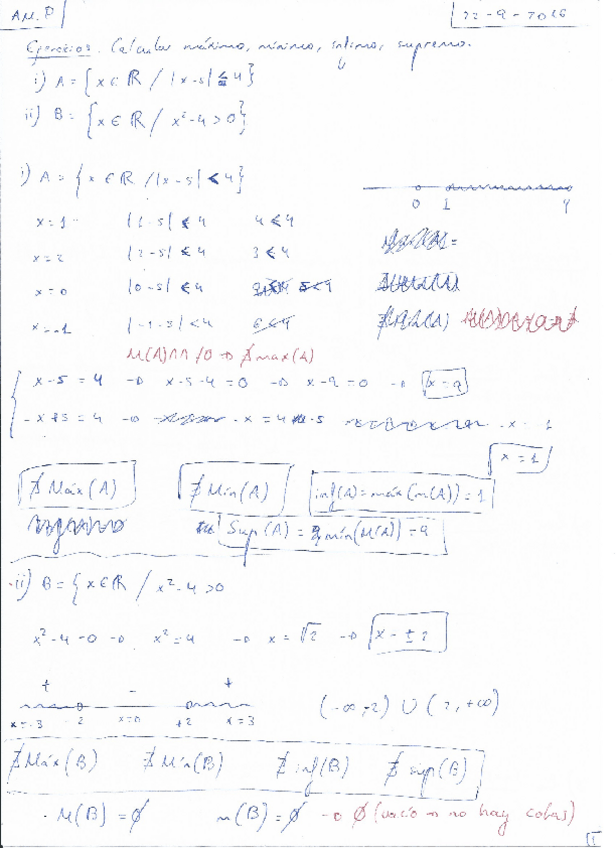 AM. P 22-9-2016
Ejercicios. Calcular máximo, mínimo, ínfimo, supremo.
i) A = {x ∈ ℝ / |x-5| ≤ 4}
ii) B = {x ∈ ℝ / x²-4 > 0}
i) A = {x ∈ ℝ / |x-5| < 4}
0 1 9
x=1 |1-5| < 4 4 < 4
x=2 |2-5| < 4 3 < 4
x=0 |0-5| < 4 5 < 4
x=-1 |-1-5| < 4 6 < 4
∄ max(A)
x-5 = 4 → x-5-4 = 0 → x-9 = 0 → x = 9
-x+5 = 4 → -x = 4-5 -x = -1
x = 1
∄ Máx(A) ∄ Min(A) inf(A) = máx(m(A)) = 1
Sup(A) = mín(M(A)) = 9
ii) B = {x ∈ ℝ / x²-4 > 0
x²-4 = 0 → x² = 4 → x = √2 → x = ± 2
+ - +
x=-3 -2 x=0 +2 x=3 (-∞,-2) ∪ (2,+∞)
∄ Máx(B) ∄ Mín(B) ∄ inf(B) ∄ sup(B)
· M(B) = ∅ m(B) = ∅ → ∅ (vacío → no hay cotas)
1